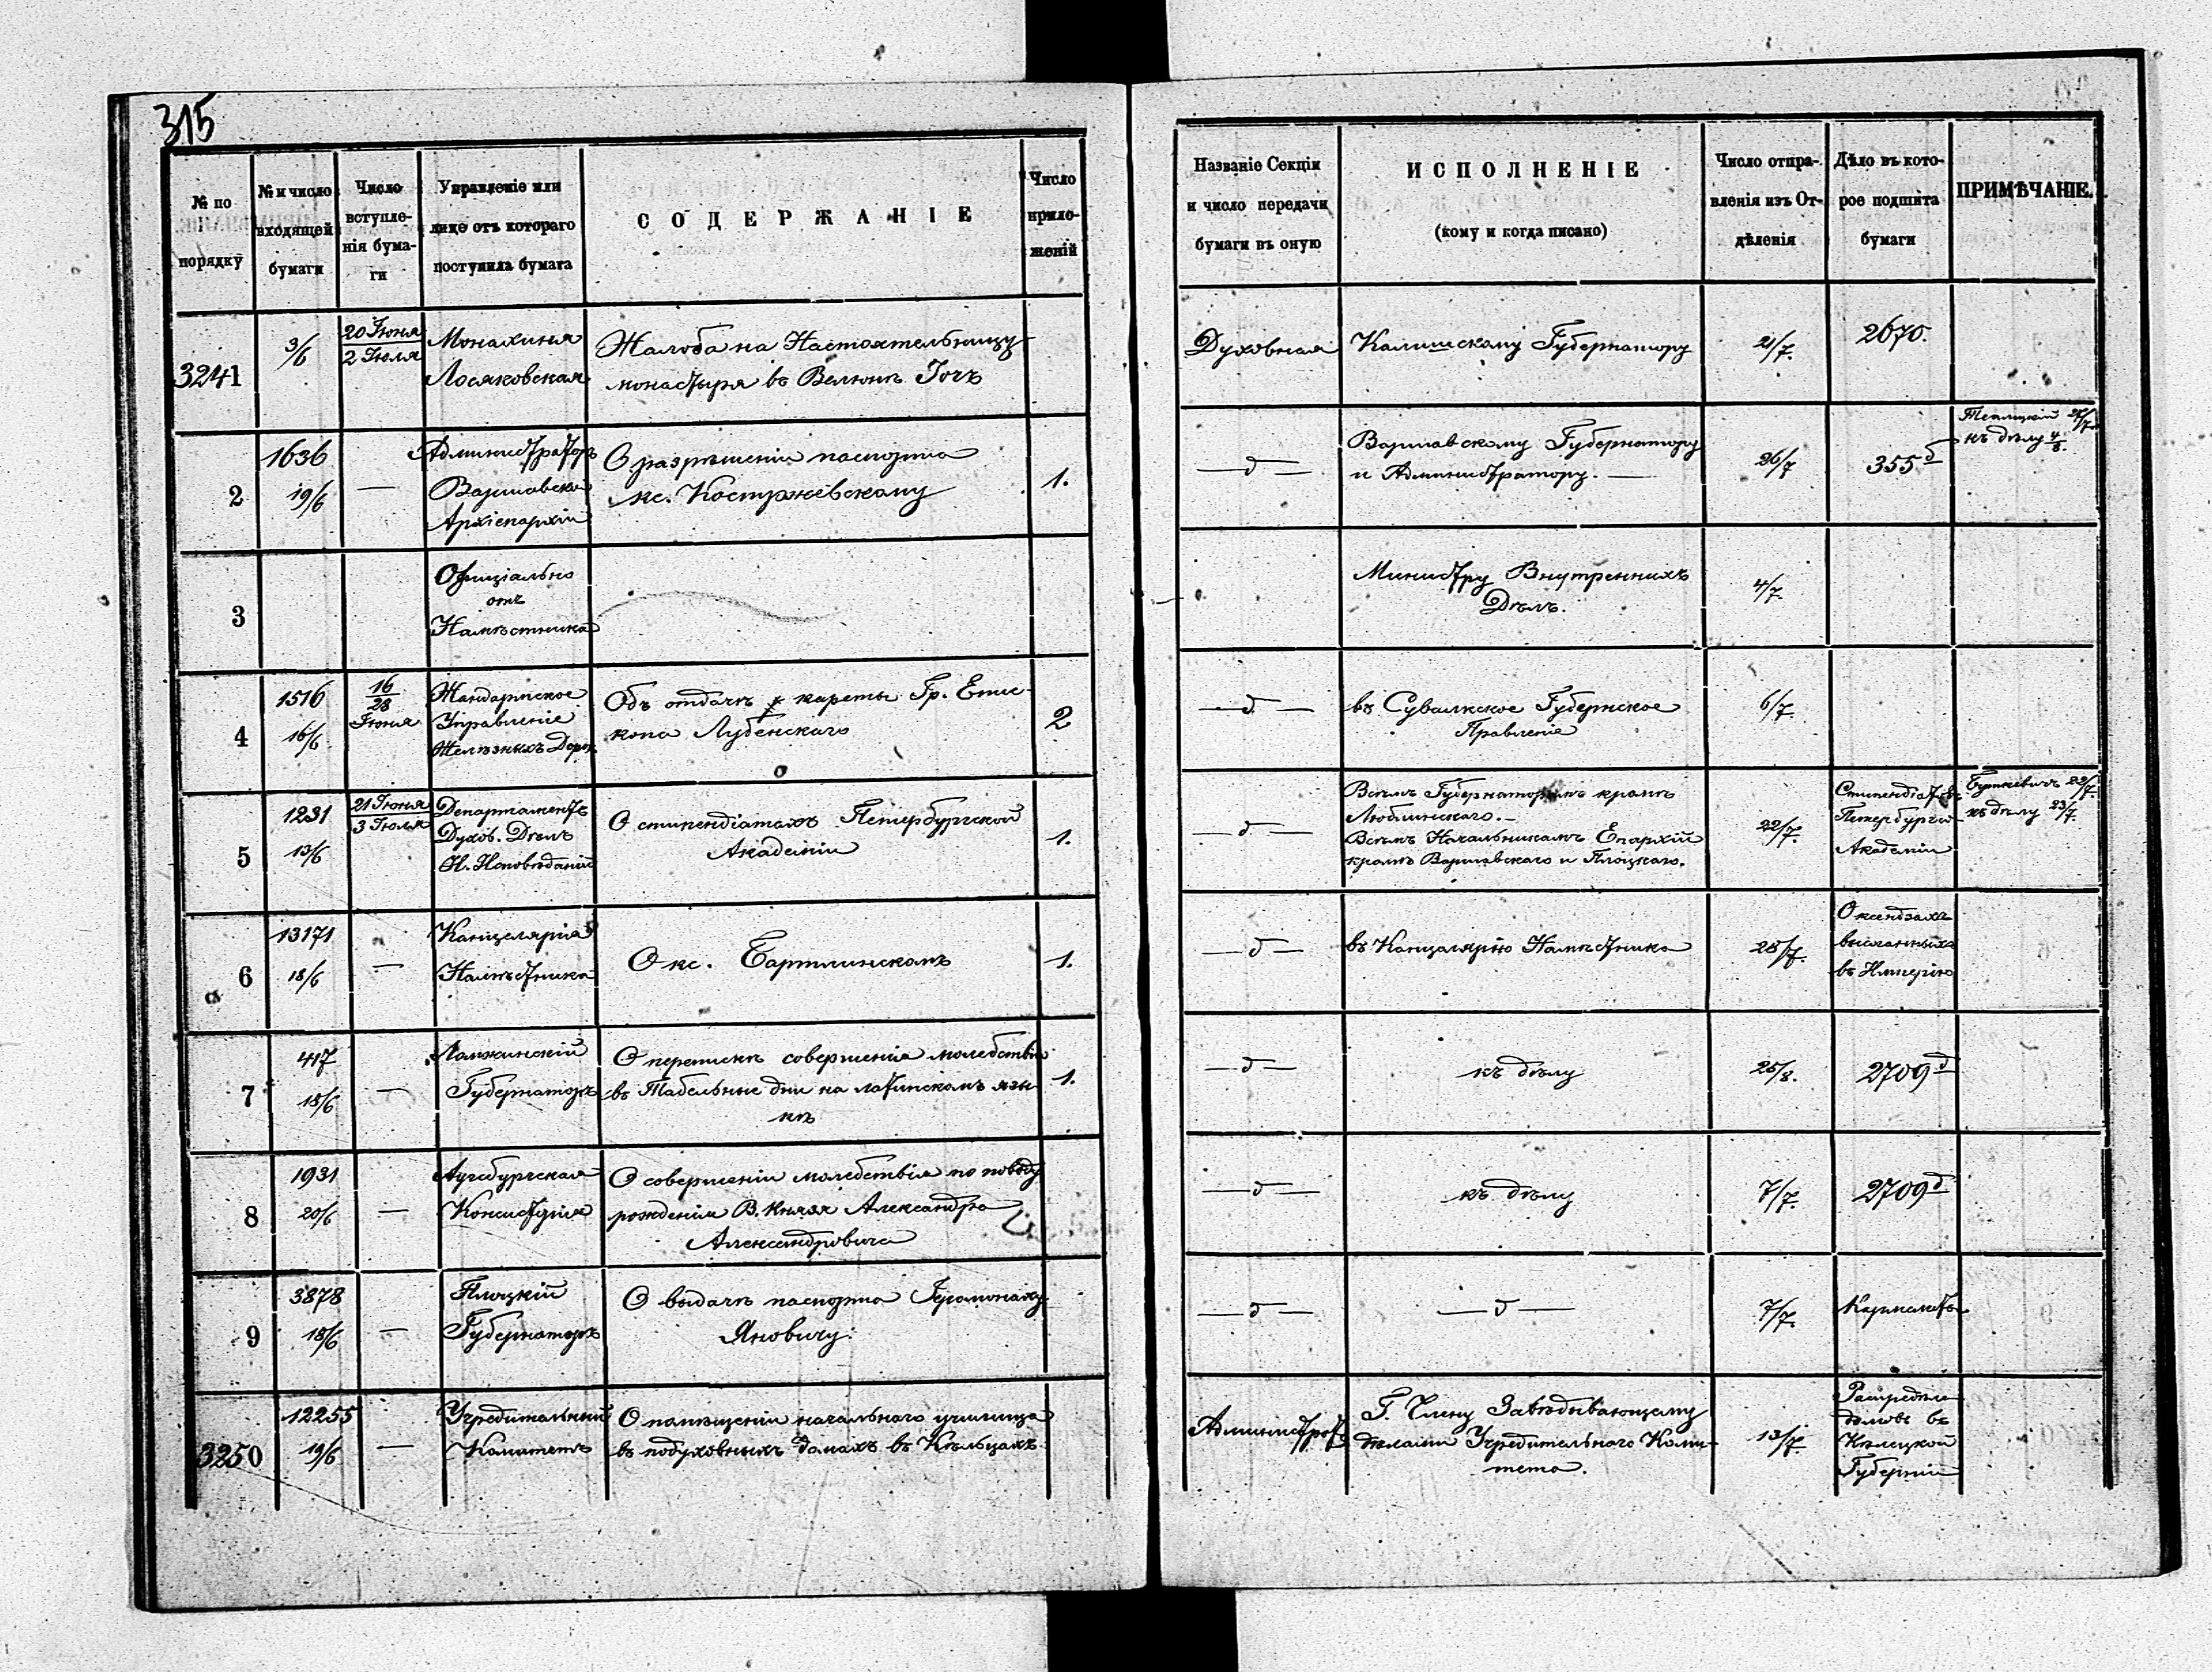 315
№ по порядку
№ и число входящей бумаги
Число вступле-
нія бума-
ги
Управленіе или
лице отъ котораго
поступила бумага
СОДЕРЖАНІЕ
Число
прило-
женій
Названіе Секціи
и число передачи
бумаги въ оную
ИСПОЛНЕНІЕ
(кому и когда писано)
Число отпра-
вленія изъ От-
дѣленія
Дѣло въ кото-
рое подшита
бумаги
ПРИМѢЧАНІЕ.
3241
3/6
20 Іюня
2 Іюля
Монахиня
Лосяковская
Жалоба на Настоятельницу
монастыря въ Велюнѣ
Духовная
Калишскому Губернатору
21/7.
2670.
2
1636
19/6
—
Администраторъ
Варшавской
Архіепархіи
О разрѣшеніи паспорта
кс. Костржевскому
1.
— д —
Варшавскому Губернатору
и Администратору. —
26/7
355 б
къ дѣлу 4/8.
3
Офиціально
отъ
Намѣстника
Министру Внутреннихъ
Дѣлъ.
4/7.
4
1516
16/6
16
28
Іюня
Жандармское
Управленіе
Желѣзныхъ Дорог.
Объ отдачѣ кареты Гр. Епис-
копа Лубенскаго
2
— д —
въ Сувалкское Губернское
Правленіе
6/7.
5
1231
13/6
21 Іюня
3 Іюля
Департаментъ
Духов. Дѣлъ
И. Исповѣданій
О стипендіатахъ Петербургской
Академіи
1.
— д —
Всѣмъ Губернаторамъ кромѣ
Люблинскаго. —
Всѣмъ Начальникамъ Епархій
кромѣ Варшавскаго и Плоцкаго.
22/7.
Стипендіатовъ
Петербургск.
Академіи
Буткевичъ 22/7.
къ дѣлу 23/7.
6
13171
18/6
—
Канцелярія
Намѣстника
О кс. Бартлинскомъ
1.
— д —
въ Канцелярію Намѣстника
28/7.
О ксендзахъ
высланныхъ
въ Имперію
7
417
18/6
—
Ломжинскій
Губернаторъ
О перепискѣ совершенія молебствія
въ Табельные дни на латинскомъ язы-
кѣ
1.
— д —
къ дѣлу
25/8.
2709 д
8
1931
20/6
—
Аугсбургская
Консисторія
О совершеніи молебствія по поводу
рожденія В. Князя Александра
Александровича
— д —
къ дѣлу
7/7.
2709 д
9
3878
18/6
—
Плоцкій
Губернаторъ
О выдачѣ паспорта Іеромонаху
Яновичу.
— д —
— д —
7/7.
Кармелитъ
3250
12255
19/6
—
Учредительный
Комитетъ
О помѣщеніи начальнаго училища
въ подуховныхъ домахъ въ Кѣльцахъ
Администрат.
Г. Члену Завѣдывающему
дѣлами Учредительнаго Коми-
тета.
13/7.
домовъ въ
Кѣлецкой
Губерніи